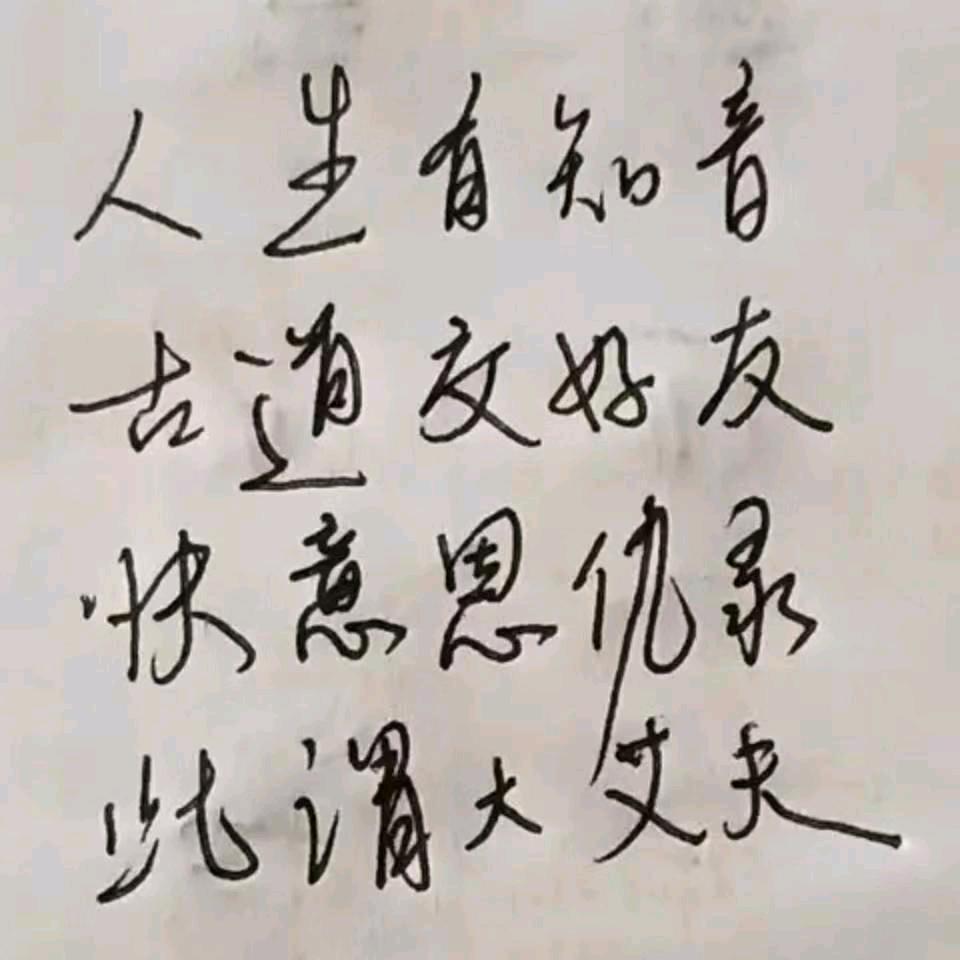 人生有知音
古道交好友
快意恩仇录
此谓大艾夫